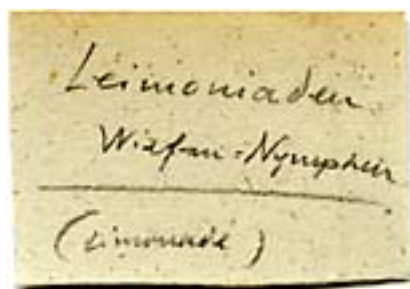 Leimoniaden
Wiesen-Nymphen
(Limonade)